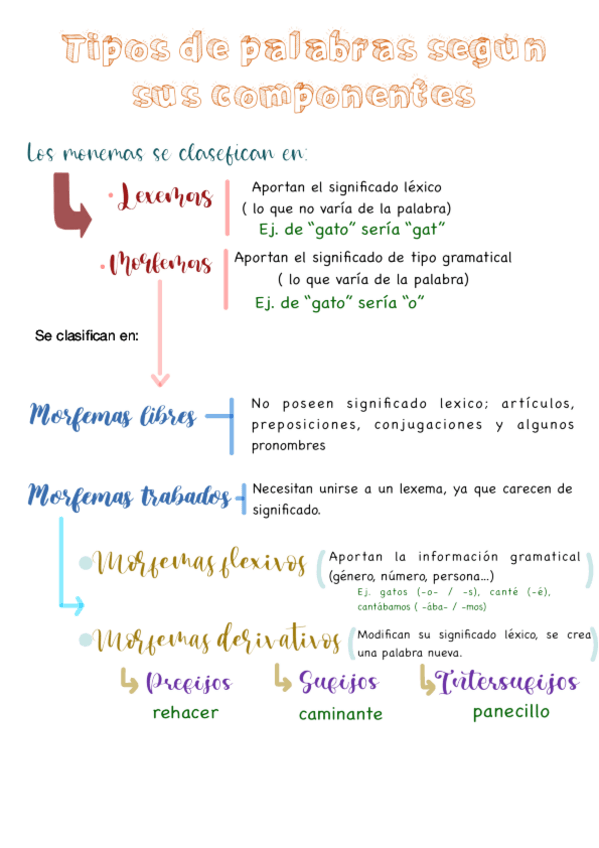 Tipos de palabras según
sus componentes
Los monemas se clasefican en:
· Lexemas
Aportan el significado léxico
( lo que no varía de la palabra)
Ej. de “gato” sería “gat”
· Morfemas
Aportan el significado de tipo gramatical
( lo que varía de la palabra)
Ej. de “gato” sería “o”
Se clasifican en:
Morfemas libres
No poseen significado lexico; artículos,
preposiciones, conjugaciones y algunos
pronombres
Morfemas trabados
Necesitan unirse a un lexema, ya que carecen de
significado.
Morfemas flexivos
Aportan la información gramatical
(género, número, persona...)
Ej. gatos (-o- / -s), canté (-é),
cantábamos ( -ába- / -mos)
Morfemas derivativos
Modifican su significado léxico, se crea
una palabra nueva.
Prefijos
Sufijos
Intersufijos
rehacer
caminante
panecillo